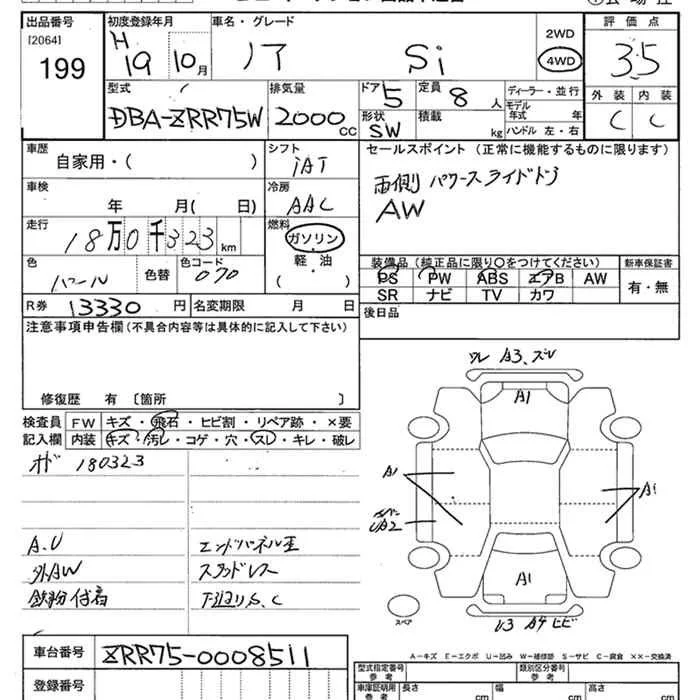 出品番号
[2064]
199
初度登録年月
H
19
10月
車名・グレード
ノア
Si
2WD
4WD
評価点
3.5
外装
内装
C
C
型式
DBA-ZRR75W
排気量
2000
CC
ドア
5
定員
8
人
形状
SW
積載
kg
ディーラー・並行
モデル
年式
年
ハンドル 左・右
車歴
自家用・(
)
シフト
IAT
車検
年
月(
日)
冷房
AAC
走行
18万0千323
km
燃料
ガソリン
軽・油
(
)
色
パール
色替
色コード
070
R券
13330
円
名変期限
月
日
セールスポイント (正常に機能するものに限ります)
両側 パワースライドドア
AW
装備品 (純正品に限り〇をつけてください)
PS
PW
ABS
エアB
AW
SR
ナビ
TV
カワ
新車保証書
有・無
後日品
注意事項申告欄(不具合内容等は具体的に記入して下さい)
修復歴 有 〔箇所
〕
検査員
記入欄
FW
キズ・飛石・ヒビ割・リペア跡・×要
内装
キズ・汚レ・コゲ・穴・スレ・キレ・破レ
180323
A.U
外AW
鉄粉付着
エンドパネル
スタッドレス
下廻りS.C
A3.
A1
A1
A1
UA2
A1
U3 A4 ヒビ
スペア
A-キズ E-エクボ U-凹み W-補修跡 S-サビ C-腐食 ××-交換済
車台番号
ZRR75-0008511
登録番号
型式指定番号
参考
類別区分番号
参考
車庫証明用
参考
長さ
cm
幅
cm
高さ
cm